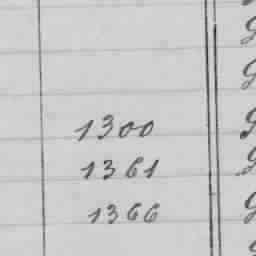 1300
1361
1366